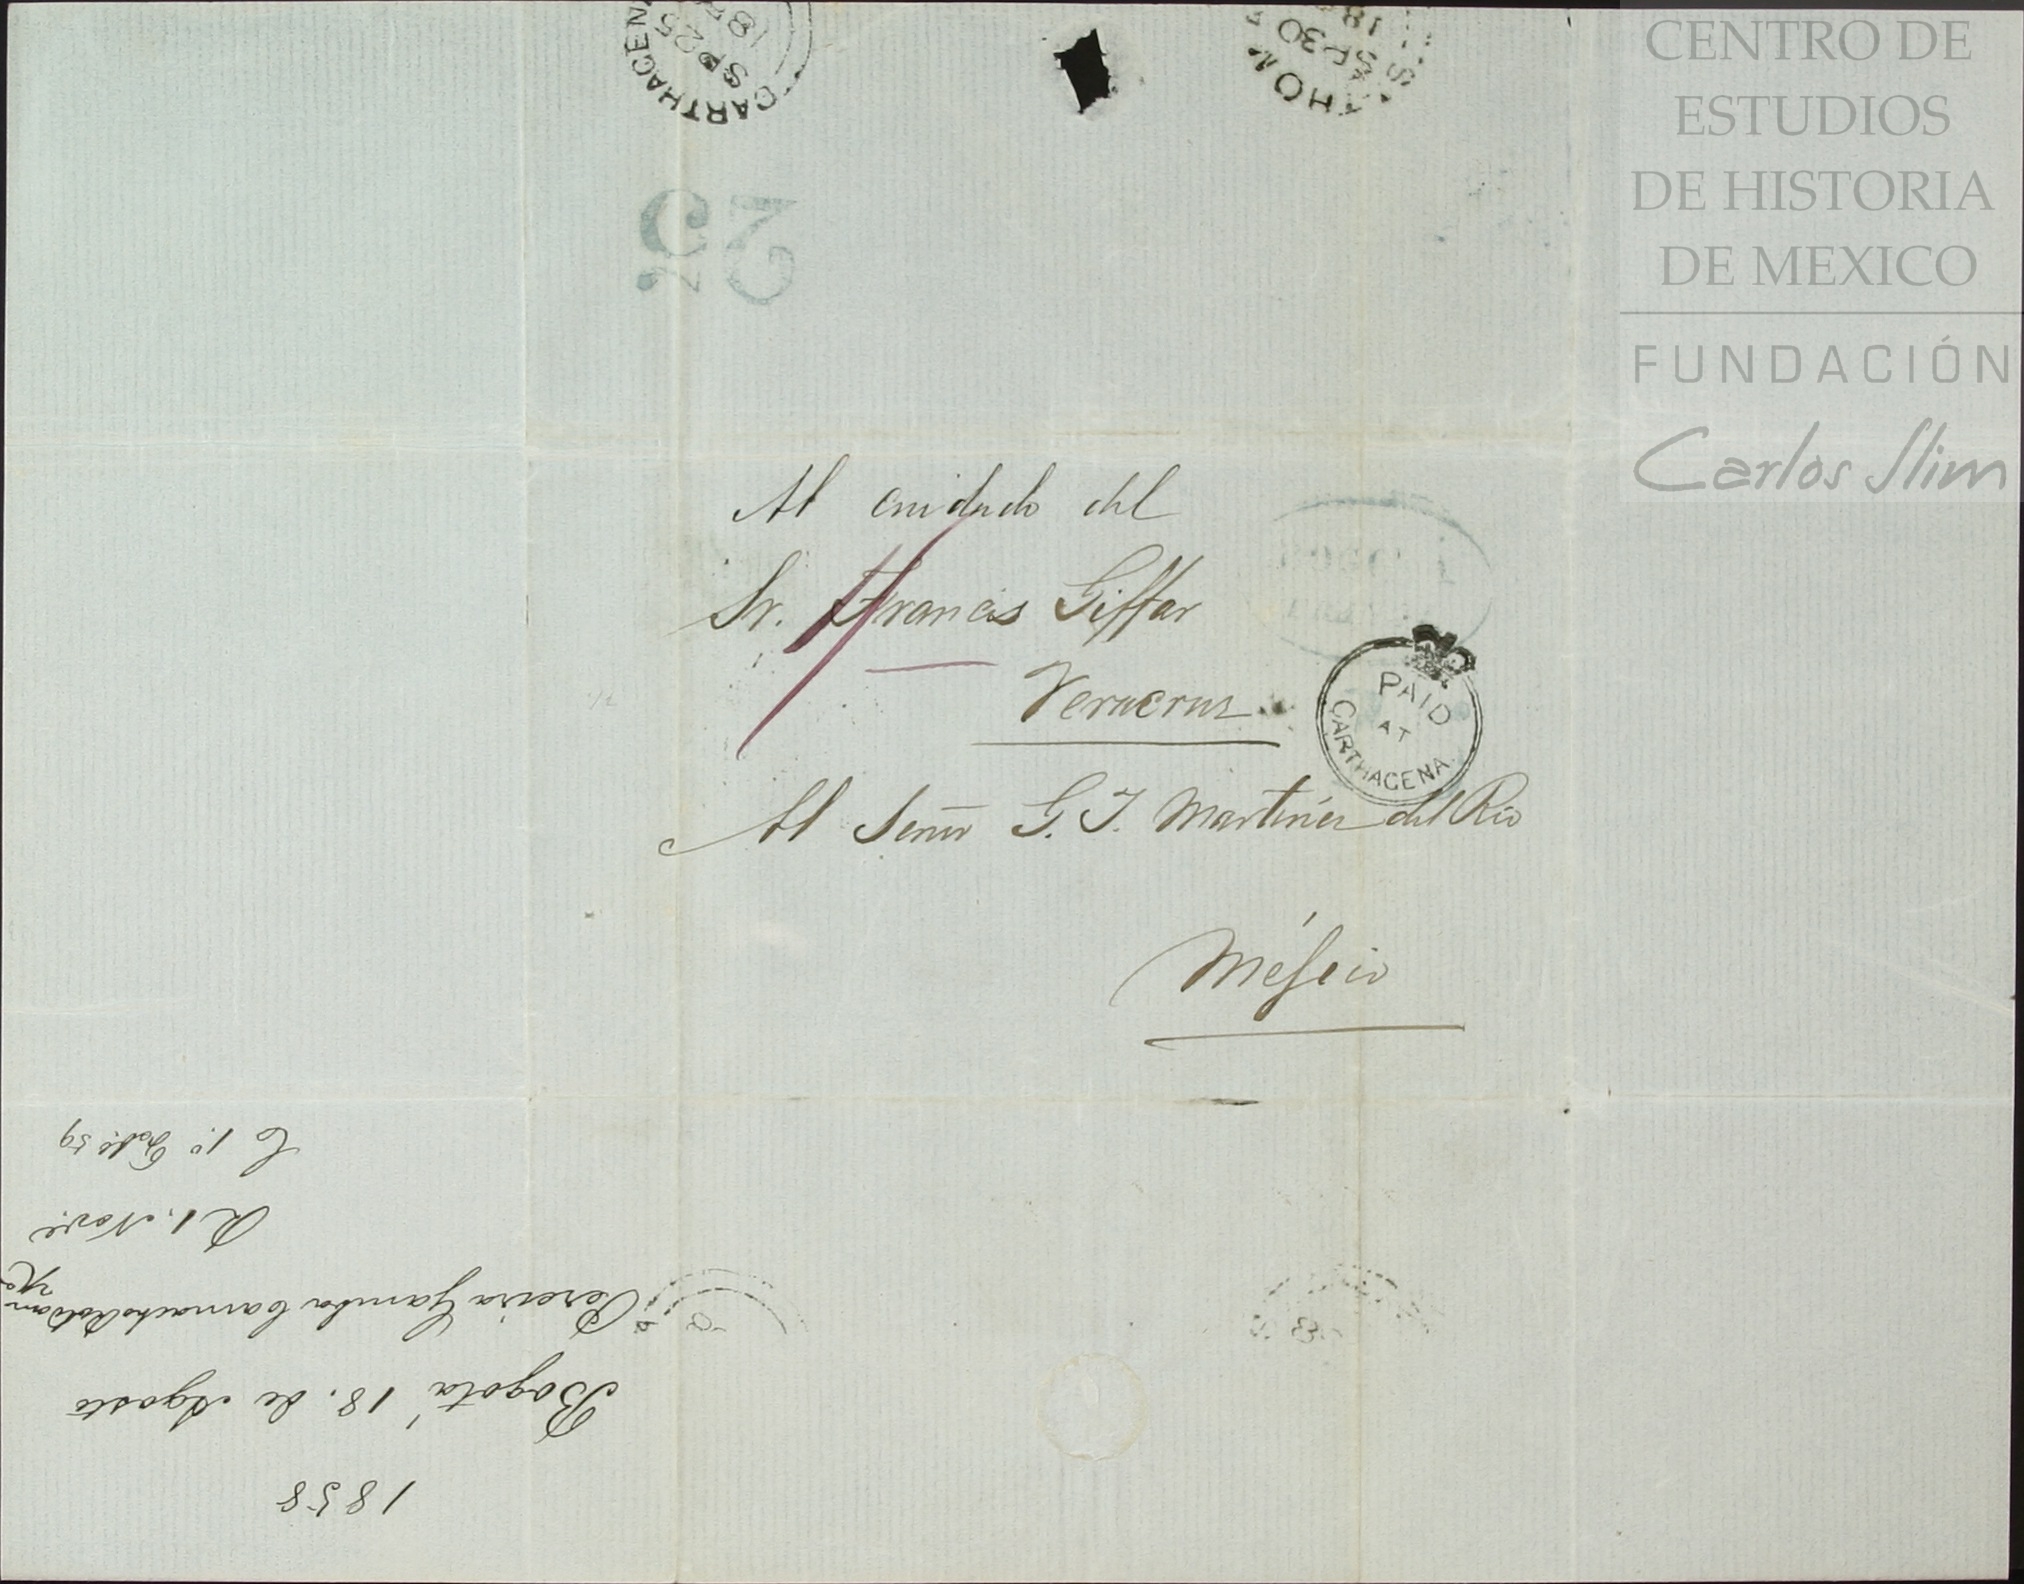 CARTHAGENA
SP 25
18
SP 30
18
25
CENTRO DE
ESTUDIOS
DE HISTORIA
DE MEXICO
FUNDACIÓN
Carlos Slim
Al cuidado del
Sr. Francis Giffar
Veracruz
PAID
AT
CARTHAGENA
Al Señor G. J. Martínez del Rio
Méjico
1858
Bogotá 18. de Agosto
Pereira Gamba Camacho Roldan
yCª
R 1. Nove
C 1º Feb. 59